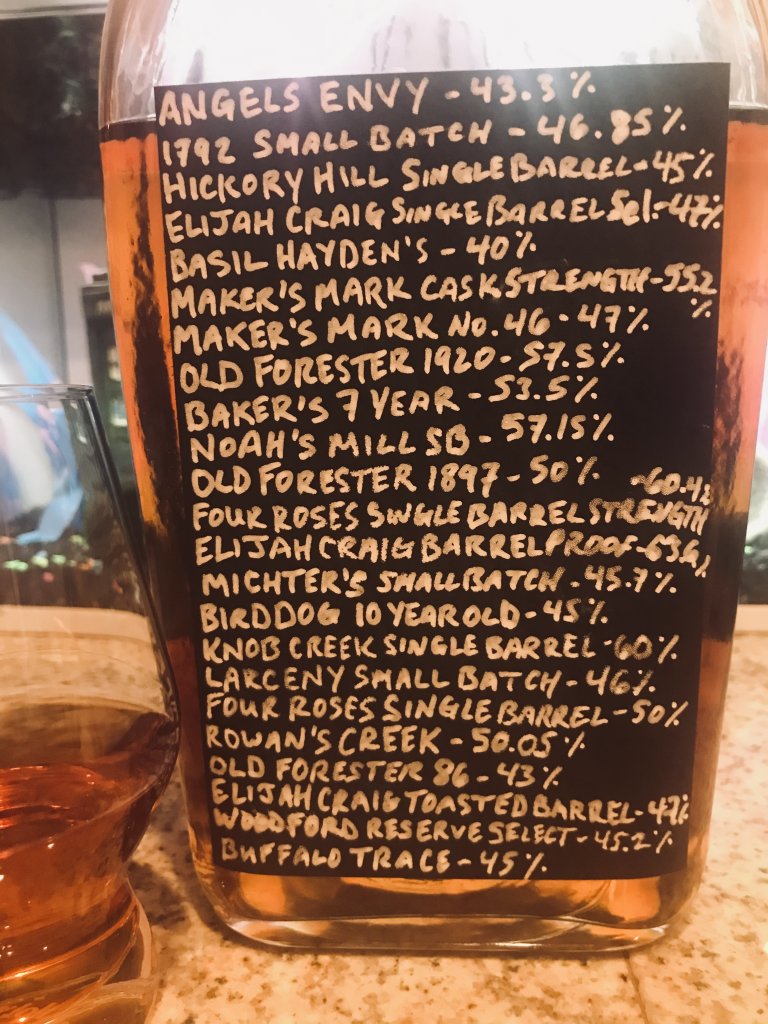 ANGELS ENVY - 43.3%
1792 SMALL BATCH - 46.85%
HICKORY HILL SINGLE BARREL - 45%
ELIJAH CRAIG SINGLE BARREL Sel. - 47%
BASIL HAYDEN'S - 40%
MAKER'S MARK CASK STRENGTH - 55.2
%
MAKER'S MARK No. 46 - 47%
OLD FORESTER 1920 - 57.5%
BAKER'S 7 YEAR - 53.5%
NOAH'S MILL SB - 57.15%
OLD FORESTER 1897 - 50%
-60.4%
FOUR ROSES SINGLE BARREL STRENGTH
ELIJAH CRAIG BARREL PROOF - 63.6%
MICHTER'S SMALL BATCH - 45.7%
BIRD DOG 10 YEAR OLD - 45%
KNOB CREEK SINGLE BARREL - 60%
LARCENY SMALL BATCH - 46%
FOUR ROSES SINGLE BARREL - 50%
ROWAN'S CREEK - 50.05%
OLD FORESTER 86 - 43%
ELIJAH CRAIG TOASTED BARREL - 47%
WOODFORD RESERVE SELECT - 45.2%
BUFFALO TRACE - 45%